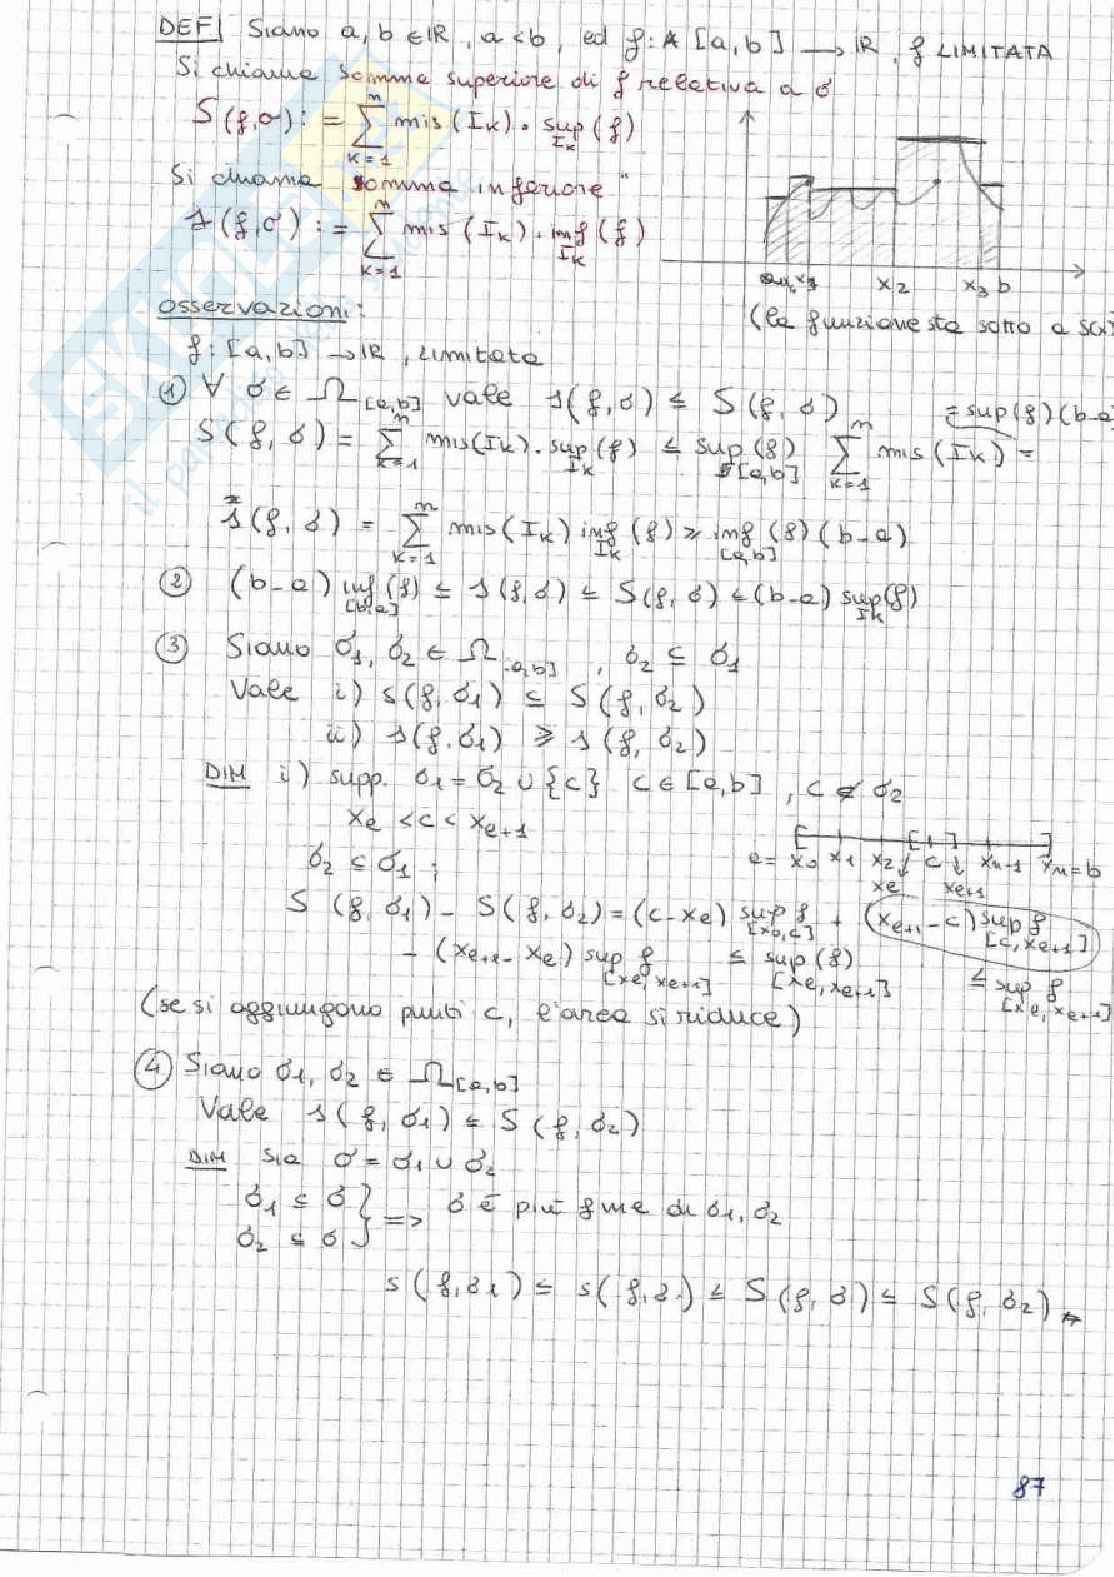 DEF Siano a, b ∈ ℝ, a < b, ed f: A [a, b] → ℝ, f LIMITATA
Si chiama somma superiore di f relativa a σ
S(f, σ) := ∑_{k=1}^{n} mis(I_k) · sup_{I_k} (f)
Si chiama somma inferiore "
s(f, σ) := ∑_{k=1}^{n} mis(I_k) · inf_{I_k} (f)
x_2 x_3 b
(la funzione sta sotto a
osservazioni:
f: [a, b] → ℝ, limitata
① ∀ σ ∈ Ω_{[a,b]} vale s(f, σ) ≤ S(f, σ)
S(f, σ) = ∑_{k=1}^{n} mis(I_k) · sup_{I_k} (f) ≤ sup_{[a,b]} (f) ∑_{k=1}^{n} mis(I_k) = = sup(f)(b-a
s(f, σ) = ∑_{k=1}^{n} mis(I_k) inf_{I_k} (f) ≥ inf_{[a,b]} (f) (b-a)
② (b-a) inf_{[b,a]} (f) ≤ s(f, σ) ≤ S(f, σ) ≤ (b-a) sup_{I_k} (f)
③ Siano σ_1, σ_2 ∈ Ω_{[a,b]}, σ_2 ⊆ σ_1
Vale i) S(f, σ_1) ≤ S(f, σ_2)
ii) s(f, σ_1) ≥ s(f, σ_2)
DIM i) supp. σ_1 = σ_2 ∪ {c} c ∈ [a, b], c ∉ σ_2
x_e < c < x_{e+1}
a = x_0 x_1 x_2 c x_{n-1} x_n = b
x_e x_{e+1}
σ_2 ⊆ σ_1;
S(f, σ_1) - S(f, σ_2) = (c - x_e) sup_{[x_e,c]} f + (x_{e+1} - c) sup_{[c,x_{e+1}]} f
- (x_{e+1} - x_e) sup_{[x_e,x_{e+1}]} f ≤ sup_{[x_e,x_{e+1}]} (f) ≤ sup_{[x_e,x_{e+1}]} f
(se si aggiungono punti c, l'area si riduce)
④ Siano σ_1, σ_2 ∈ Ω_{[a,b]}
Vale s(f, σ_1) ≤ S(f, σ_2)
DIM Sia σ = σ_1 ∪ σ_2
σ_1 ⊆ σ
σ_2 ⊆ σ } => σ è più fine di σ_1, σ_2
s(f, σ_1) ≤ s(f, σ) ≤ S(f, σ) ≤ S(f, σ_2)
87